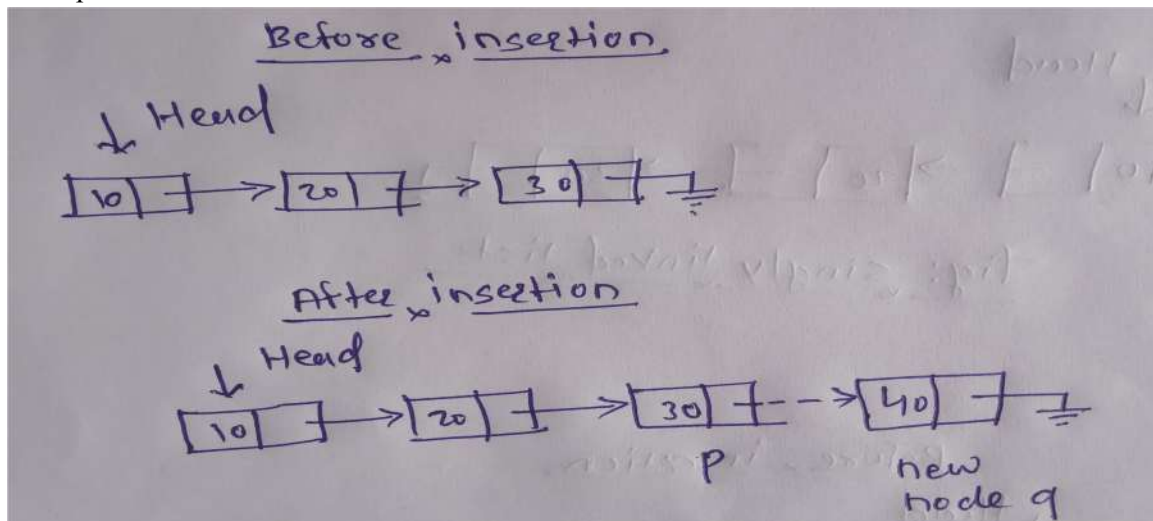 Before insertion
Head
10 20 30
After insertion
Head
10 20 30 40
p
new
node q